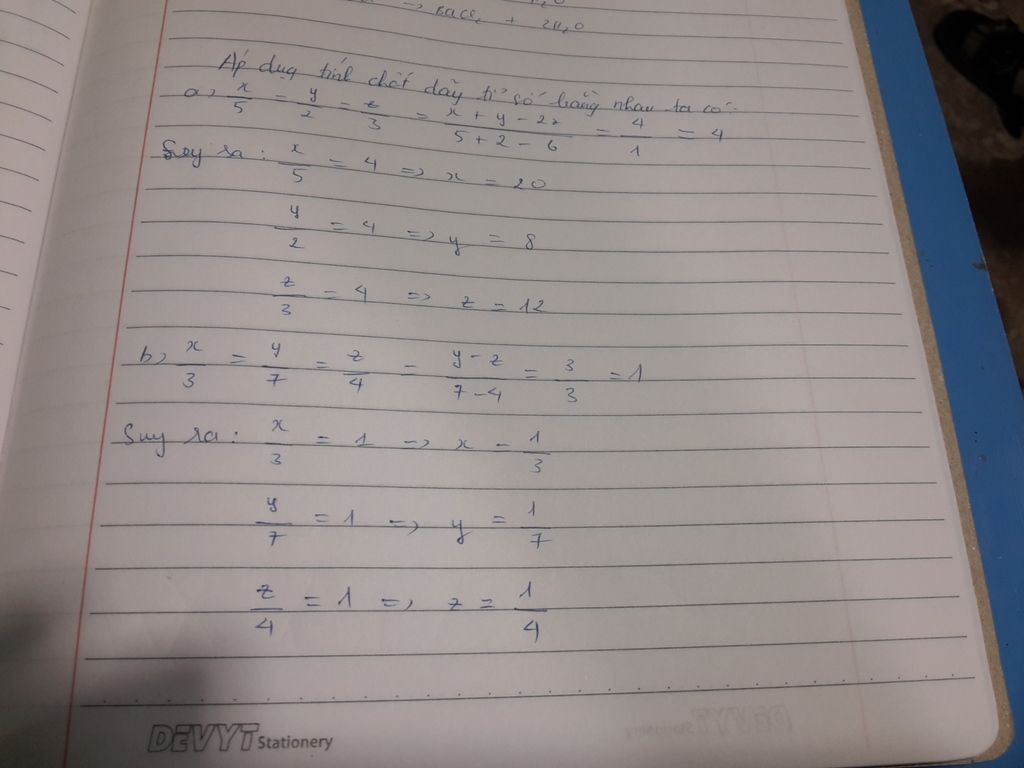 → BaCl₂ + 2H₂O
Áp dụng tính chất dãy tỉ số bằng nhau ta có:
a, x/5 = y/2 = z/3 = (x + y - 2z)/(5 + 2 - 6) = 4/1 = 4
Suy ra : x/5 = 4 => x = 20
y/2 = 4 => y = 8
z/3 = 4 => z = 12
b, x/3 = y/7 = z/4 = (y - z)/(7 - 4) = 3/3 = 1
Suy ra : x/3 = 1 => x = 1/3
y/7 = 1 => y = 1/7
z/4 = 1 => z = 1/4
DEVYT Stationery